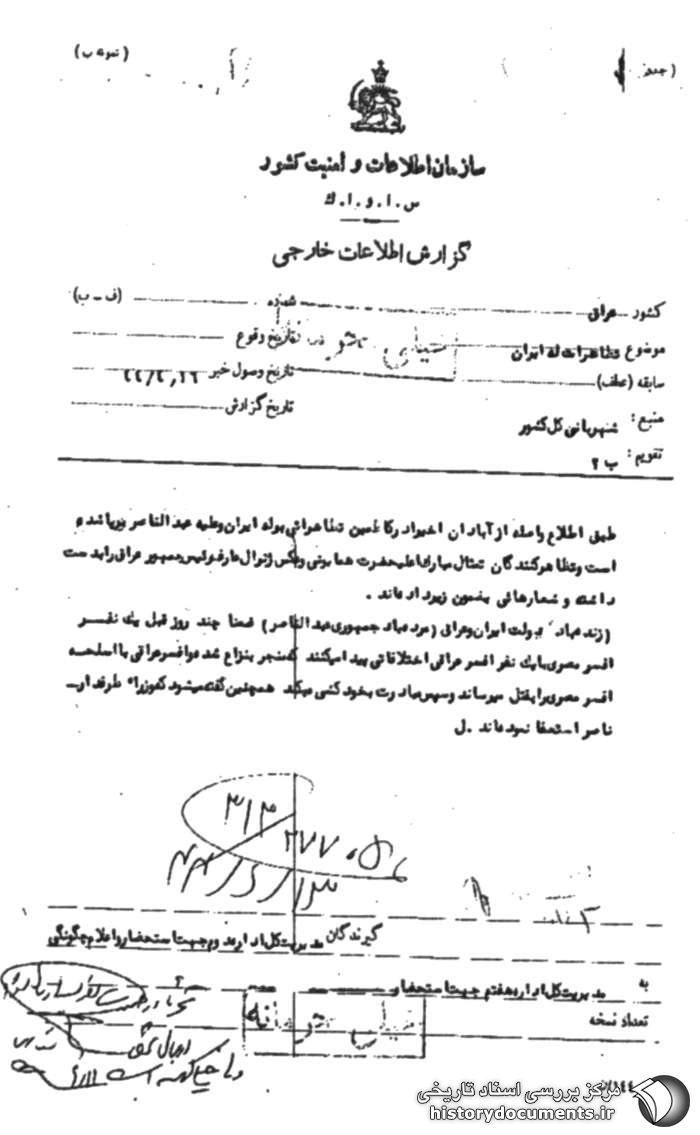 (نمونه ب)
سازمان اطلاعات و امنیت کشور
س.ا.و.ا.ك
گزارش اطلاعات خارجی
کشور عراق
شماره (ف-ب)
موضوع تظاهرات له ایران
تاریخ وقوع
خیلی محرمانه
سابقه (عطف)
تاریخ وصول خبر ۴۴/۴/۱۶
منبع: شهربانی کل کشور
تاریخ گزارش
تقویم: ب ۲
طبق اطلاع واصله از آبادان اخیرا در کاظمین تظاهراتی بوله ایران وعلیه عبدالناصر برپا شده
است وتظاهرکنندگان تمثال مبارك اعلیحضرت همایونی وعکس ژنرال عارف رئیس جمهور عراق رابدست
داشته و شعارهائی بمضمون زیر داده‌اند .
(زنده باد دولت ایران وعراق) (مرده باد جمهوری عبدالناصر) ضمنا چند روز قبل یك نفر
افسر مصری با یك نفر افسر عراقی اختلافاتی پیدا میکنند که منجر بنزاع شده و افسر عراقی با اسلحه
افسر مصری را بقتل میرساند وسپس مبادرت بخود کشی میکند همچنین گفته میشود که وزراء طرفدار
ناصر استعفا نموده‌اند .ل
۳۱۳
۲۷۷۰۵
گیرندگان مدیریت کل اداره دوم جهت استحضار واعلام چگونگی
به مدیریت کل اداره هفتم جهت استحضار
تعداد نسخه
خیلی محرمانه
مرکز بررسی اسناد تاریخی
historydocuments.ir